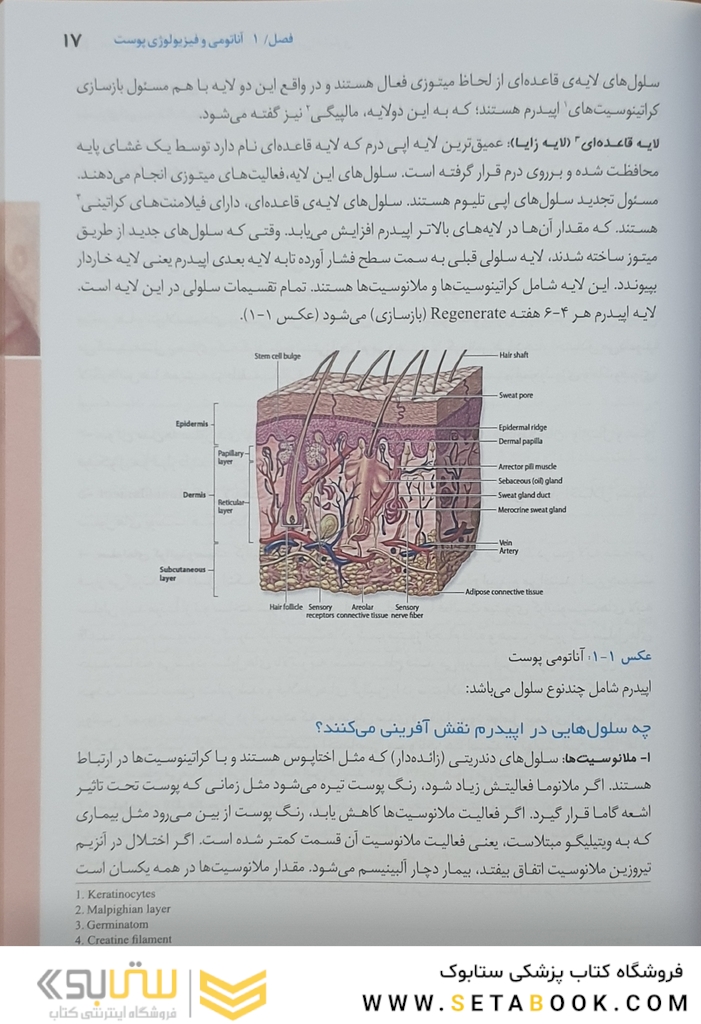 فصل/ ۱ آناتومی و فیزیولوژی پوست
۱۷
سلول‌های لایه‌ی قاعده‌ای از لحاظ میتوزی فعال هستند و در واقع این دو لایه با هم مسئول بازسازی
کراتینوسیت‌های۱ اپیدرم هستند؛ که به این دولایه، مالپیگی۲ نیز گفته می‌شود.
لایه قاعده‌ای۳ (لایه زایا): عمیق‌ترین لایه اپی درم که لایه قاعده‌ای نام دارد توسط یک غشای پایه
محافظت شده و برروی درم قرار گرفته است. سلول‌های این لایه، فعالیت‌های میتوزی انجام می‌دهند.
مسئول تجدید سلول‌های اپی تلیوم هستند. سلول‌های لایه‌ی قاعده‌ای، دارای فیلامنت‌های کراتینی۴
هستند. که مقدار آن‌ها در لایه‌های بالاتر اپیدرم افزایش می‌یابد. وقتی که سلول‌های جدید از طریق
میتوز ساخته شدند، لایه سلولی قبلی به سمت سطح فشار آورده تابه لایه بعدی اپیدرم یعنی لایه خاردار
بپیوندد. این لایه شامل کراتینوسیت‌ها و ملانوسیت‌ها هستند. تمام تقسیمات سلولی در این لایه است.
لایه اپیدرم هر ۴-۶ هفته Regenerate (بازسازی) می‌شود (عکس ۱-۱).
Stem cell bulge
Hair shaft
Sweat pore
Epidermis
Epidermal ridge
Dermal papilla
Papillary
layer
Arrector pili muscle
Sebaceous (oil) gland
Dermis
Sweat gland duct
Reticular
layer
Merocrine sweat gland
Vein
Artery
Subcutaneous
layer
Adipose connective tissue
Hair follicle
Sensory
receptors
Areolar
connective tissue
Sensory
nerve fiber
عکس ۱-۱: آناتومی پوست
اپیدرم شامل چندنوع سلول می‌باشد:
چه سلول‌هایی در اپیدرم نقش آفرینی می‌کنند؟
۱- ملانوسیت‌ها: سلول‌های دندریتی (زائده‌دار) که مثل اختاپوس هستند و با کراتینوسیت‌ها در ارتباط
هستند. اگر ملانوما فعالیتش زیاد شود، رنگ پوست تیره می‌شود مثل زمانی که پوست تحت تاثیر
اشعه گاما قرار گیرد. اگر فعالیت ملانوسیت‌ها کاهش یابد، رنگ پوست از بین می‌رود مثل بیماری
که به ویتیلیگو مبتلاست، یعنی فعالیت ملانوسیت آن قسمت کمتر شده است. اگر اختلال در آنزیم
تیروزین ملانوسیت اتفاق بیفتد، بیمار دچار آلبینیسم می‌شود. مقدار ملانوسیت‌ها در همه یکسان است
1. Keratinocytes
2. Malpighian layer
3. Germinatom
4. Creatine filament
فروشگاه کتاب پزشکی ستابوک
WWW.SETABOOK.COM
ستابوک
فروشگاه اینترنتی کتاب